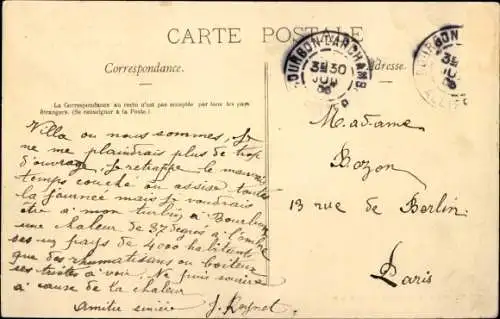 CARTE POSTALE
Correspondance.
Adresse.
La Correspondance au recto n'est pas acceptée par tous les pays
étrangers. (Se renseigner à la Poste.)
BOURBON-L'ARCHAMB
3E 30
JUIL
BOURBON
3E
ALLIER
Villa ou nous sommes, Je
ne me plaindrais plus de trop
d'ouvrage Je retrappe le mauvais
temps couché ou assise toute
la journée mais Je voudrais
être à mon turbin à Bourbon
une chaleur de 37 degrés à l'ombre
un pays de 4000 habitants
que des rhumatisans ou boiteux
à voir. Ne puis
à cause de la chaleur
Amitié sincère
Madame
Bozon
13 rue de Berlin
Paris